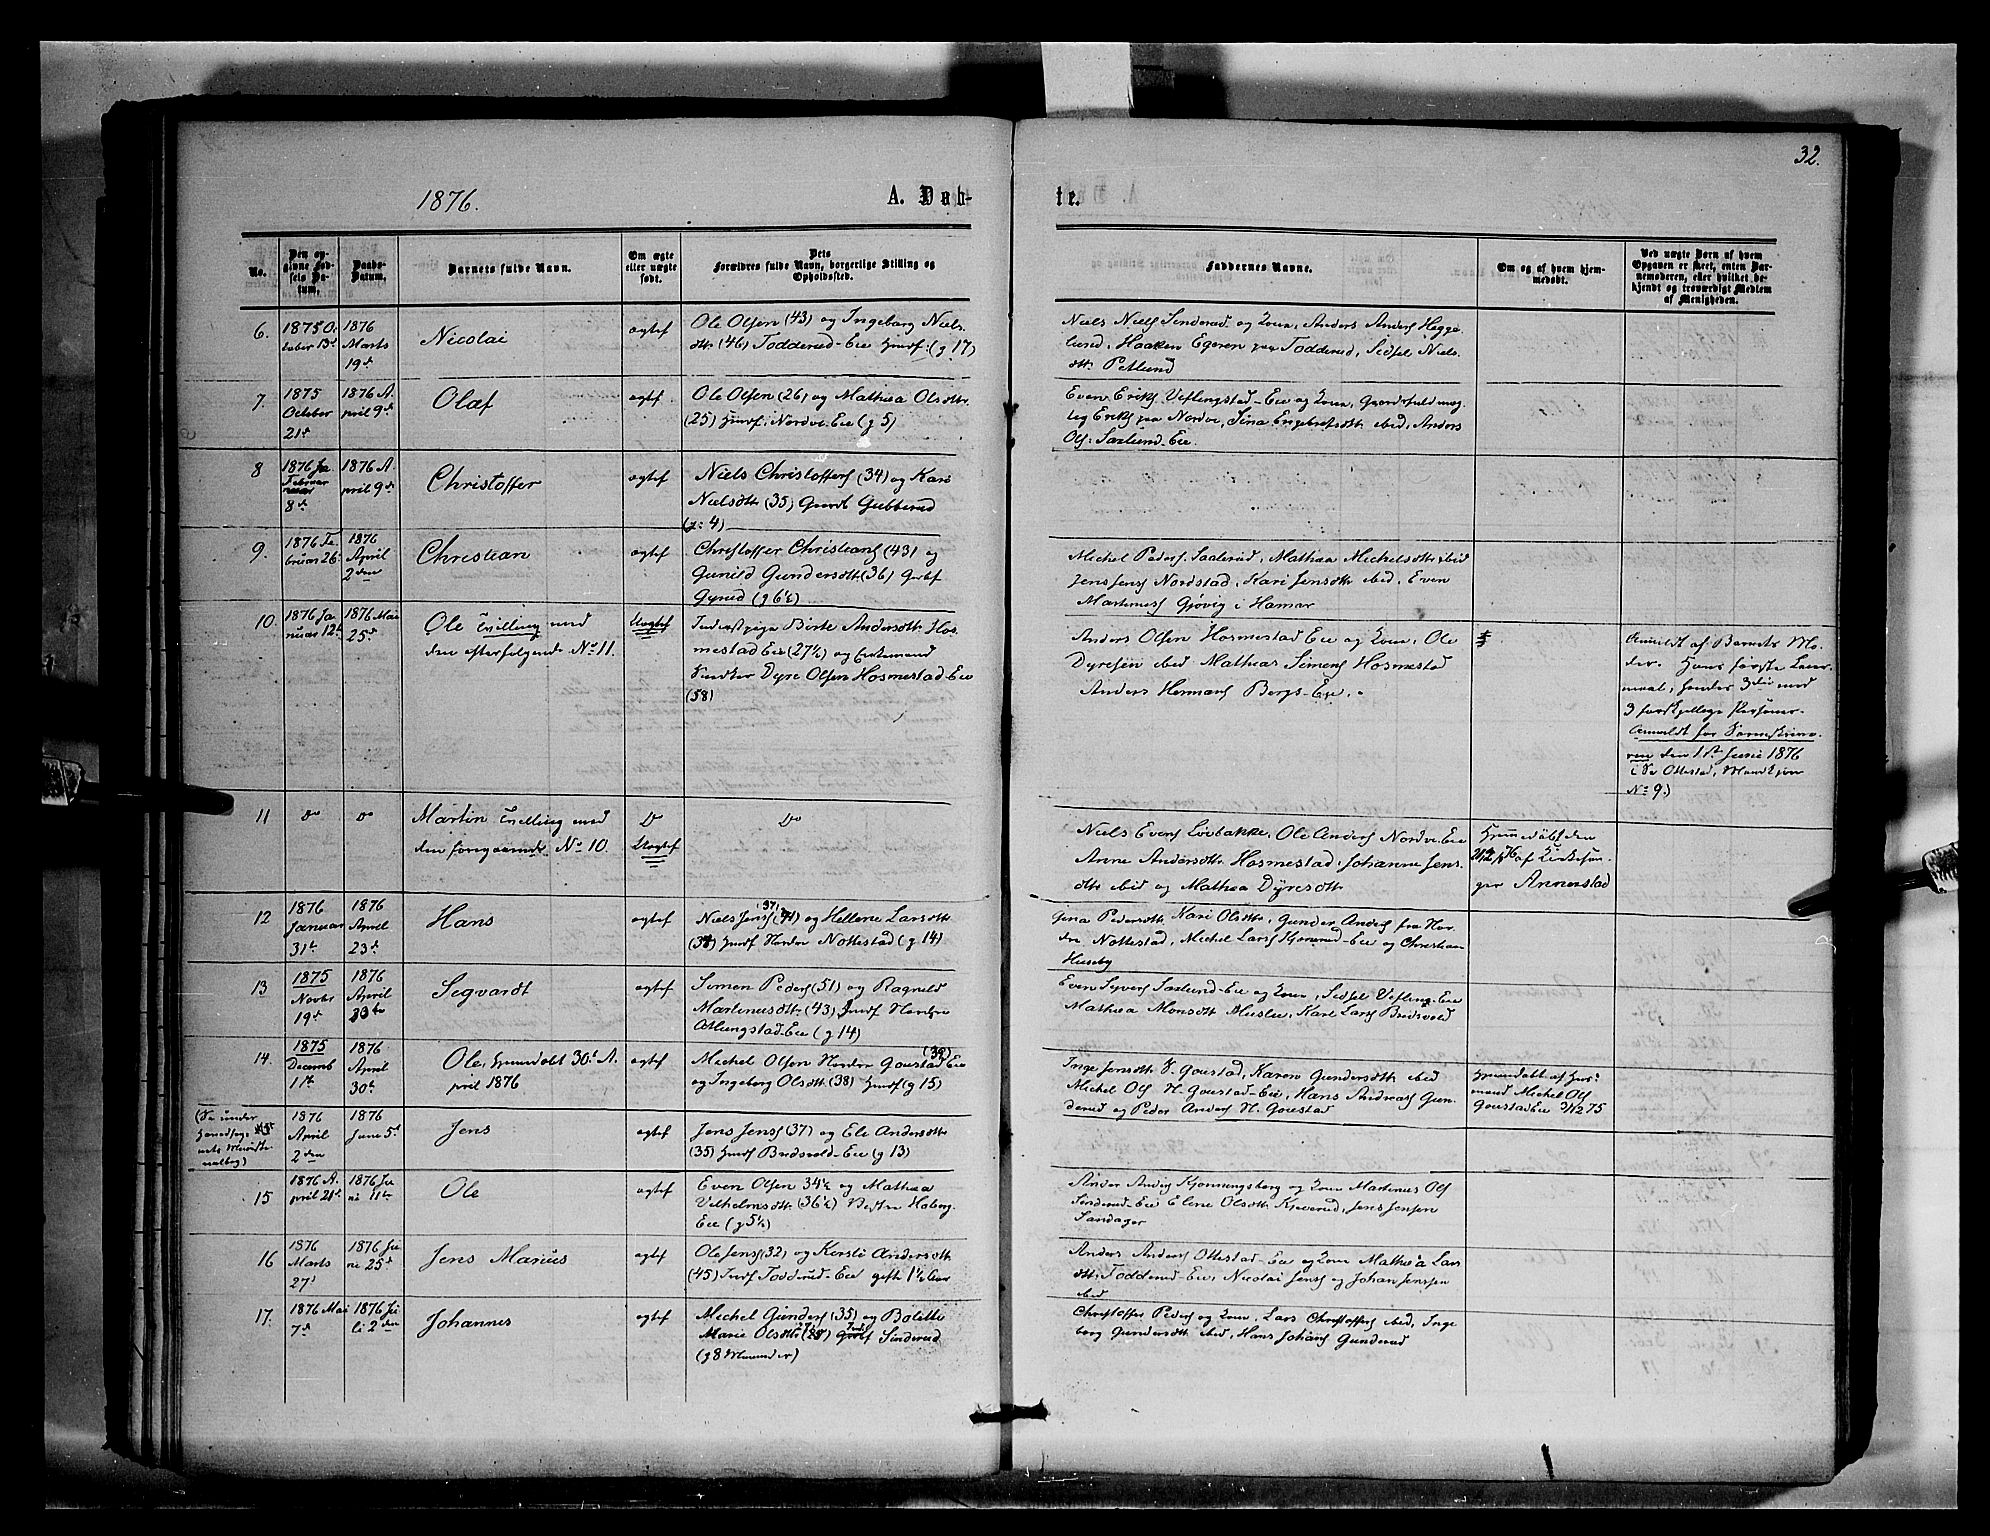 32.
1876.
A. Døb-
te.
No.
Den op-
givne Fød-
sels Da-
tum.
Daabs-
Datum.
Barnets fulde Navn.
Om ægte
eller uægte
født.
Dets
Forældres fulde Navn, borgerlige Stilling og
Opholdssted.
Faddernes Navne.
Om og af hvem hjem-
medøbt.
Ved uægte Børn af hvem
Opgaven er skeet, enten Bar-
nemoderen, eller hvilket be-
kjendt og troværdigt Medlem
af Menigheden.
6.
1875 Oc
tober 13d
1876
Marts
19d
Nicolai
ægtef
Ole Olsen (43) og Ingeborg Niels
dtr (46) Todderud-Eie Husmf: (g 17)
Niels Niels Sinderud og Kone, Anders Anders Hegge
lund, Haaken Egeren paa Todderud, Sidsel Niels
dtr Petlund
7.
1875
October
21d
1876 A
pril 9d
Olaf
ægtef
Ole Olsen (26) og Mathea Olsdtr
(25) Husmf: Nordve-Eie (g 5)
Even Eriks Veflingstad-Eie og Kone, Gaardsfuldmæg
tig Eriks paa Nordve, Sina Engebretsdtr ibid, Anders
Ols: Saxlund-Eie
8
1876 Ja
Februar
nuar
8d
1876 A
pril 9d
Christoffer
ægtef
Niels Christoffers (34) og Kari
Nielsdtr (35) Gaardb Gubberud
(g: 4)
9.
1876 Fe
bruar 26
1876
April
2den
Christian
ægtef
Christoffer Christians (43) og
Gunild Gundersdtr (36) Gaardbf
Gyrud (g 6½)
Michel Peders Saxlerud, Mathea Michelsdtr ibid
Jens Jens Nordstad, Kari Jensdtr ibid, Even
Martinus Gjøvig i Hamar
10.
1876 Ja
nuar 12t
1876 Mai
25d
Ole Tvilling med
den efterfølgende No 11.
Uægtef
Inderstpige Birte Andersdtr Hos
mestad Eie (27½) og Enkemand
Inderst Dyre Olsen Hosmestad-Eie
(58)
Anders Olsen Hosmestad Eie og Kone, Ole
Dyresen ibid Mathias Simens Hosmestad
Anders Hermans Bergs-Eie.
Anmeldt af Barnets Mo
der. Hans første Leier
maal, hendes 3die med
3 forskjellige Personer.
Anmeldt for Sorenskrive
ren den 1ste Juni 1876
(Se Ottestad, Mandkjøn
No 9.)
11
Do
Do
Martin Tvilling med
den foregaaende No 10.
Do
Uægtef
Do
Niels Evens Lobakke, Ole Anders Nordve Eie
Anne Andersdtr Hosmestad, Johanne Jens
dtr ibid og Mathea Dyresdtr
Hjemmedøbt den
21/2 76 af Kirkesan
ger Annerstad
12
1876
Januar
31t
1876
April
23d
Hans
ægtef
37
Niels Jens (41) og Hellene Larsdtr
(38) Husmf Nordre Nottestad (g 14)
Gina Pedersdtr Kari Olsdtr, Gunder Anders fra Nor
dre Nottestad, Michel Lars Kjonerud-Eie og Christian
Huseby
13
1875
Novbr
19d
1876
April
23de
Segvardt
ægtef
Simen Peders (51) og Ragnild
Martinusdtr (43) Husmf Nordre
Atlungstad-Eie (g 14)
Even Syvers Saxlund-Eie og Kone, Sidsel Vefling-Eie
Mathea Monsdtr Huslu, Karl Lars Bredsvold
14.
1875
Decemb
11t
1876
April
30te
Ole, hjemmedøbt 30t A
pril 1876
ægtef
Michel Olsen Nordre Goustad Eie
(38)
og Ingeborg Olsdtr (38) Husmf (g 15)
Inge Jensdtr S. Goustad, Karen Gundersdtr ibid
Michel Ols N. Goustad-Eie, Hans Andreas Gun
derud og Peder Anders N. Goustad
Hjemmedøbt af Hus
mand Michel Ols
Goustad Eie 3/12 75
1876
April
2den
1876
Juni 5t
Jens
ægtef
Jens Jens (37) og Eli Andersdtr
(35) Husmf Bredsvold-Eie (g 13)
15
1876 A
pril 21t
1876 Ju
ni 11te
Ole
ægtef
Even Olsen 34½ og Mathea
Vilhelmsdtr (36½) Vestre Hoberg
Eie (g 5½)
Ander Andrs Kjonningsberg og Kone Martinus Ols
Sinderud-Eie Eline Olsdtr Kjeverud, Jens Jensen
Sandager
16
1876
Marts
27d
1876 Ju
ni 25d
Jens Marius
ægtef
Ole Jens (32) og Kersti Andersdtr
(45) Indf Todderud-Eie gifte 1½ Aar
Anders Anders Ottestad-Eie og Kone Mathea Lars
dtr Todderud-Eie, Nicolai Jens og Johan Jenssen
ibid
17.
1876 Mai
7d
1876 Ju
li 2den
Johannes
ægtef
Michel Gunders (35) og Bolette
Marie Olsdtr (28) Gaardbf Sinderud
(g 8 Maaneder)
Christoffer Peders og Kone, Lars Christoffers ibid, Inge
borg Gundersdtr ibid, Hans Johans Gunderud